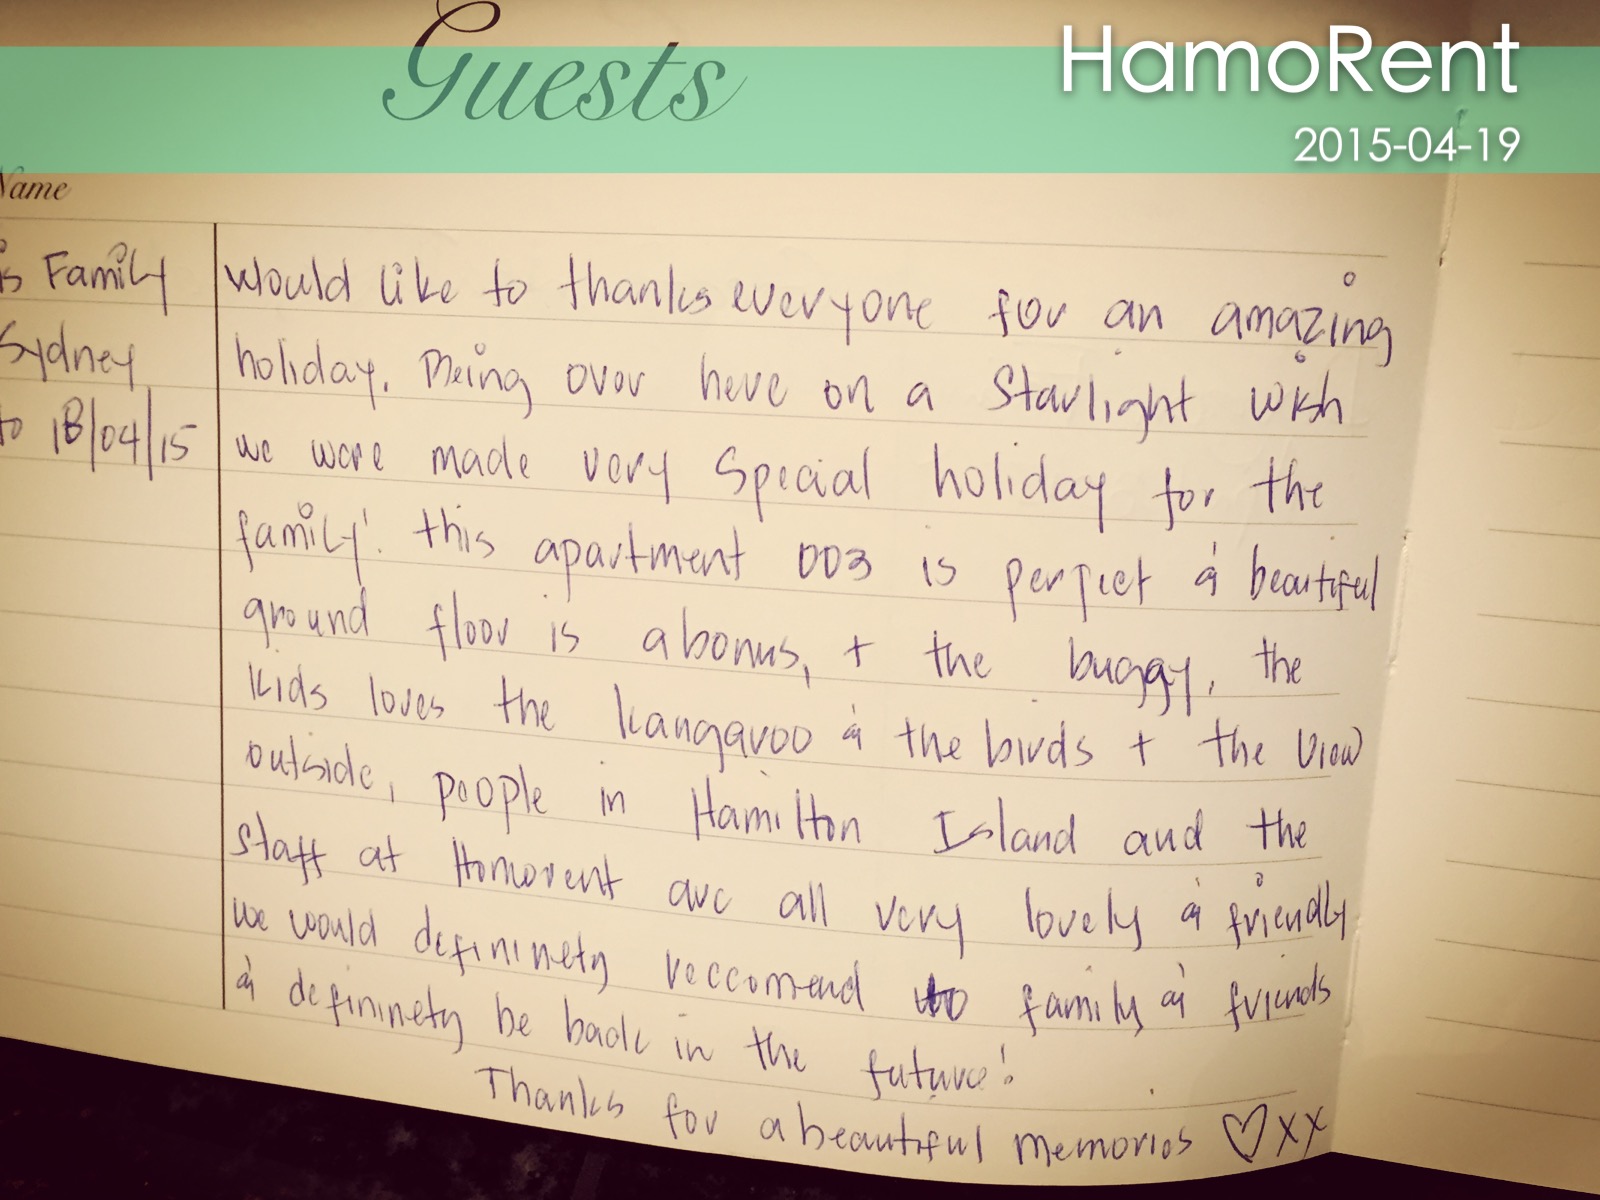 Guests
HamoRent
2015-04-19
Name
is Family
Sydney
to 18/04/15
would like to thanks everyone for an amazing
holiday. Being over here on a Starlight wish
we were made very Special holiday for the
family! this apartment 003 is perfect & beautiful
ground floor is a bonus, + the buggy, the
kids loves the kangaroo & the birds + the view
outside, people in Hamilton Island and the
staff at Hamorent are all very lovely & friendly
we would defininety reccomend to family & friends
& defininety be back in the future!
Thanks for a beautiful memories ♡xx